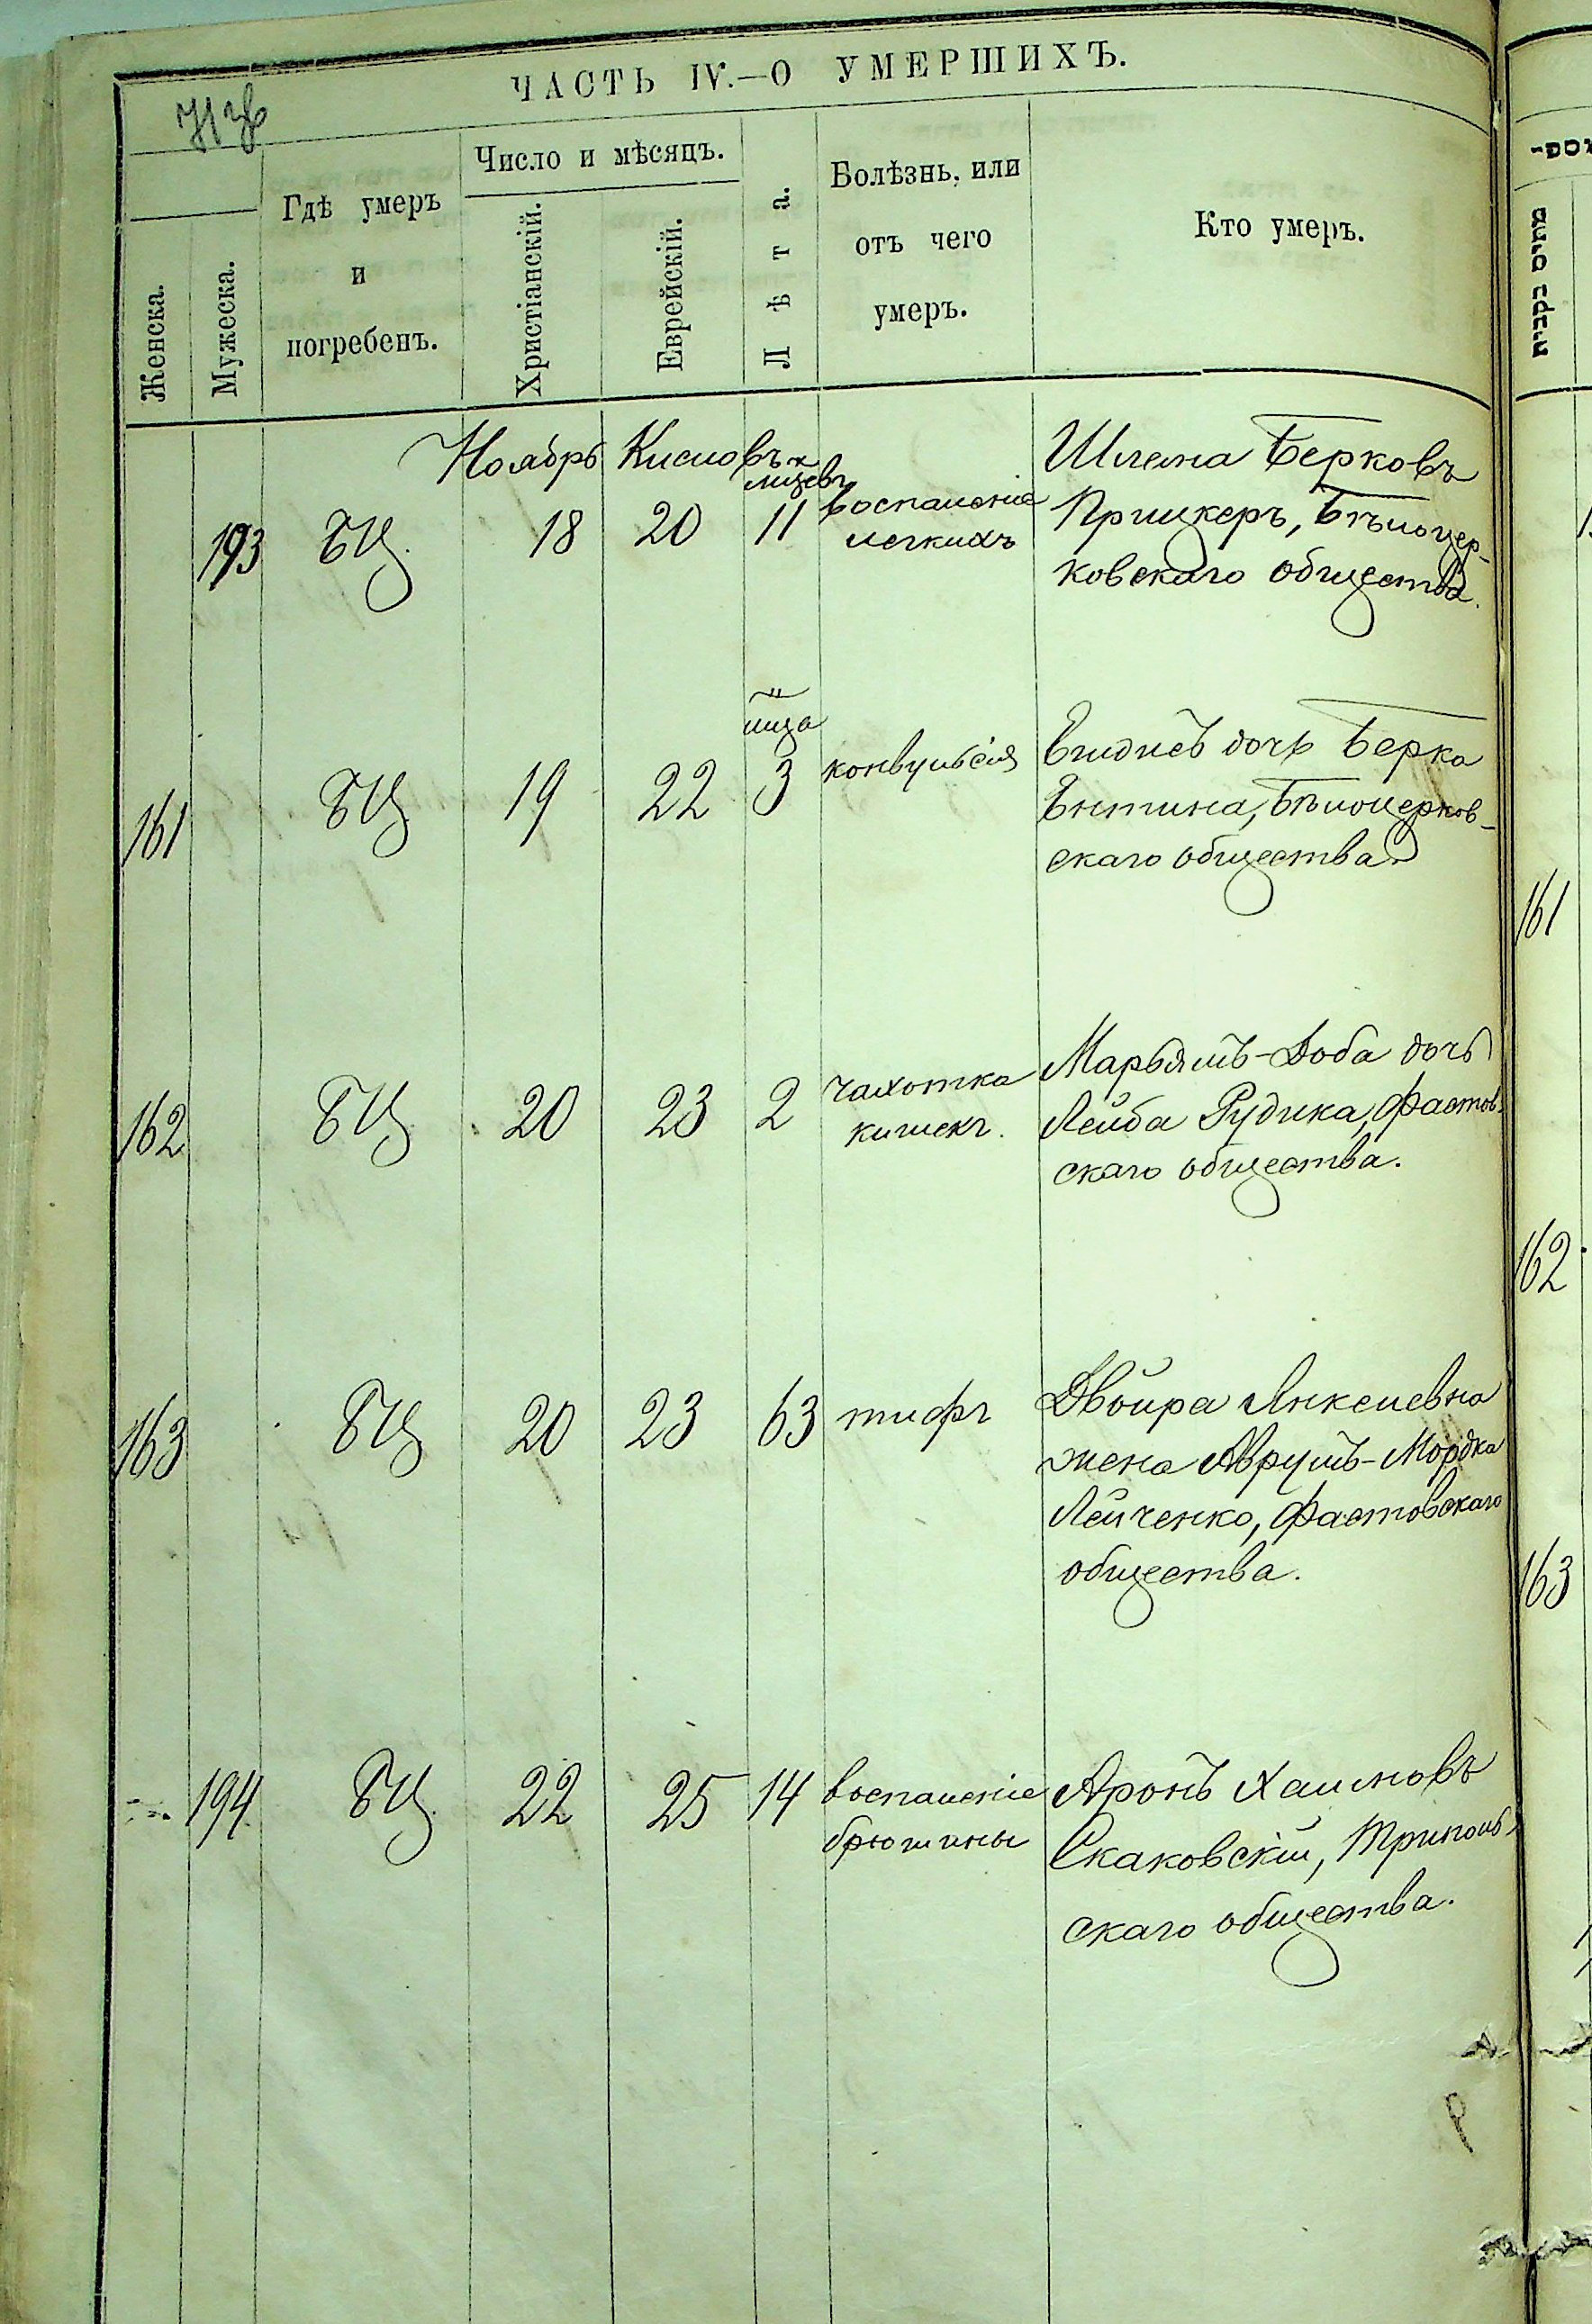 ЧАСТЬ IV.—О УМЕРШИХЪ.
Женска.
Мужеска.
Гдѣ умеръ
и
погребенъ.
Число и мѣсяцъ.
Христіанскій.
Еврейскій.
Лѣта.
Болѣзнь, или
отъ чего
умеръ.
Кто умеръ.
Ноябрь Кислевъ
193 БЦ. 18 20 11 воспаленіе легкихъ
Шлема Берковъ
Прицкеръ, Бѣлоцер-
ковскаго общества.
161 БЦ. 19 22 3 конвульсія
дочь Берка
Энтина, Бѣлоцерков-
скаго общества
162 БЦ. 20 23 2 чахотка кишекъ.
Марьямъ-Доба дочь
Лейба Рудика, Фастов-
скаго общества.
163 БЦ. 20 23 63 тифъ
Двойра Янкелевна
жена Аврумъ-Мордка
Лейченко, Фастовскаго
общества.
194 БЦ. 22 25 14 воспаленіе брюшины
Аронъ Хаимовъ
Скаковскій, Триполь-
скаго общества.
161
162
163